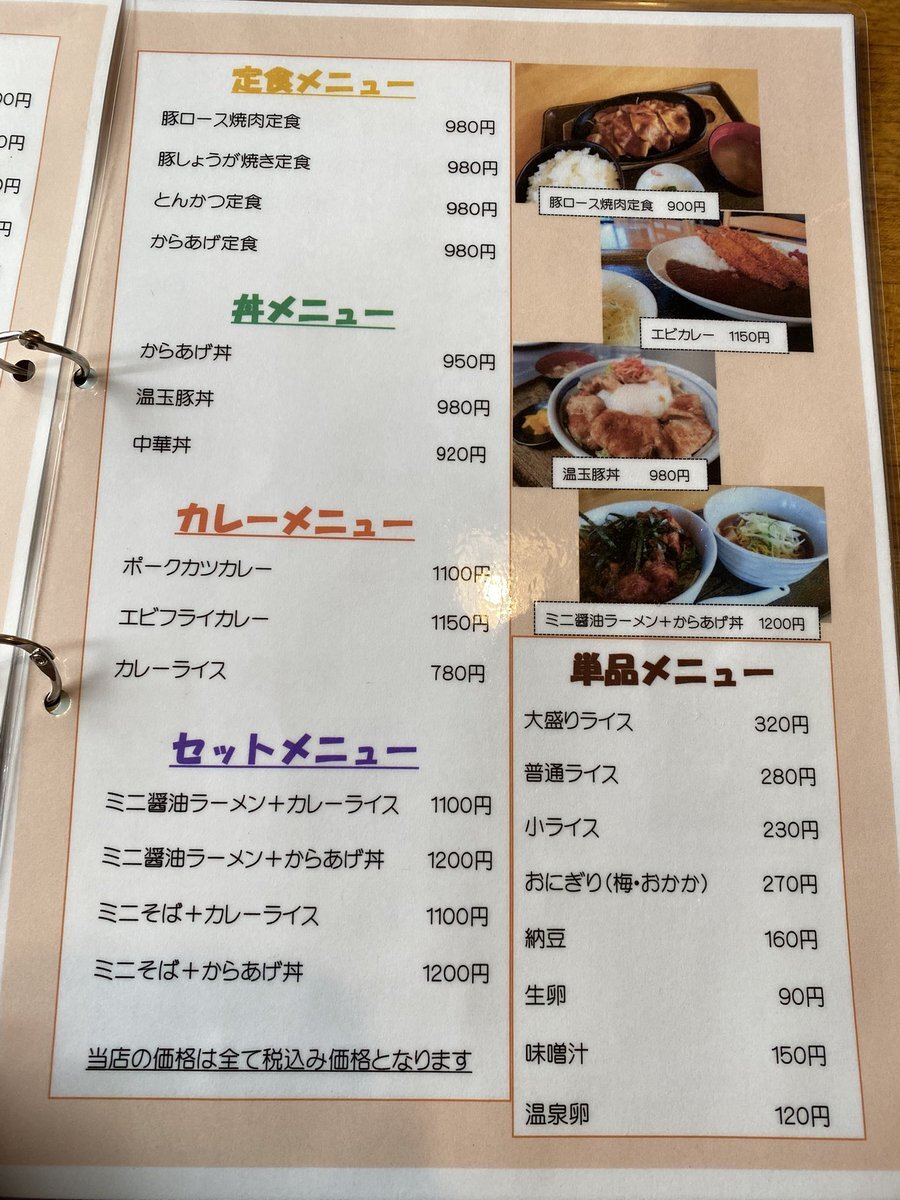 00円
0円
0円
円
定食メニュー
豚ロース焼肉定食 980円
豚しょうが焼き定食 980円
とんかつ定食 980円
からあげ定食 980円
丼メニュー
からあげ丼 950円
温玉豚丼 980円
中華丼 920円
カレーメニュー
ポークカツカレー 1100円
エビフライカレー 1150円
カレーライス 780円
セットメニュー
ミニ醤油ラーメン+カレーライス 1100円
ミニ醤油ラーメン+からあげ丼 1200円
ミニそば+カレーライス 1100円
ミニそば+からあげ丼 1200円
当店の価格は全て税込み価格となります
豚ロース焼肉定食 900円
エビカレー 1150円
温玉豚丼 980円
ミニ醤油ラーメン+からあげ丼 1200円
単品メニュー
大盛りライス 320円
普通ライス 280円
小ライス 230円
おにぎり(梅・おかか) 270円
納豆 160円
生卵 90円
味噌汁 150円
温泉卵 120円